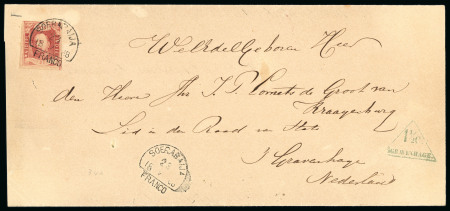 SOERABAIJA
FRANCO
WelEdelGeboren Heer
den Heere Jhr. de Groot van
Kraayenburg
Lid in de Raad van State
's Gravenhage
Nederland
SOERABAIJA
FRANCO
'S GRAVENHAGE